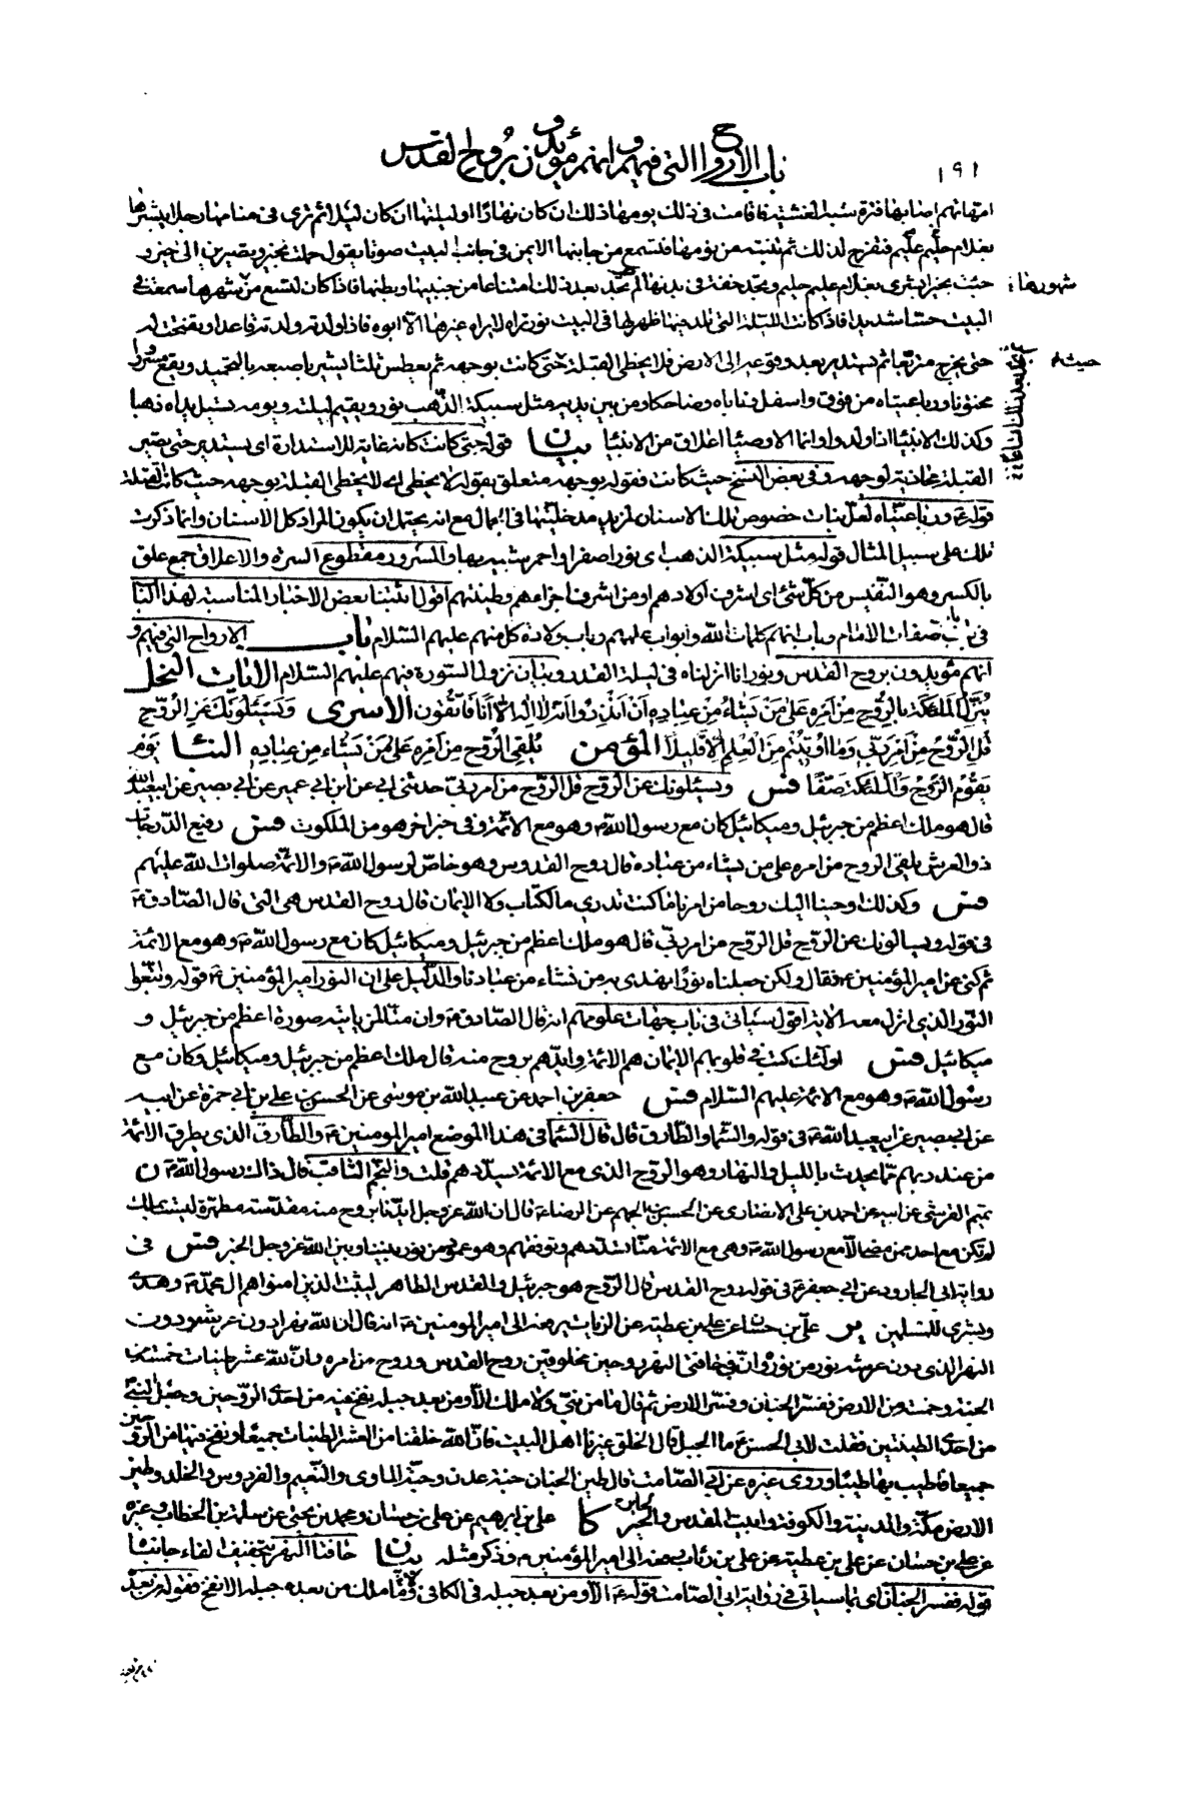 ١٩١
باب الارواح التى فيهم و انهم مؤيدون بروح القدس
امهاتهم اصابها فترة شبه الغشية فاقامت فى ذلك يومها ذلك ان كان نهارًا او ليلتها ان كان ليلا ثم ترى فى منامها رجلا يبشرها
بغلام حليم عليم فتفرح لذلك ثم تنتبه من نومها فتسمع من جانبها الايمن فى جانب البيت صوتا يقول حملت بخير و تصيرين الى خير و
جئت بخير ابشرى بغلام عليم حليم و تجد خفة فى بدنها ثم لم تجد بعد ذلك امتناعا من جنبيها و بطنها فاذا كان لتسع من شهرها سمعت فى
شهورها :
البيت حسا شديدا فاذا كانت الليلة التى تلد فيها ظهر لها فى البيت نور تراه لا يراه غيرها الا ابوه فاذا ولدته ولدته قاعدا و تفتحت له
حتى يخرج متربعا ثم يستدير بعد وقوعه الى الارض فلا يخطى القبلة حتى كانت بوجهه ثم يعطس ثلثا يشير باصبعه بالتحميد و يقع مسرورا
حيث م
مختونا و رباعيتاه من فوق و اسفل و ناباه و ضاحكاه و من بين يديه مثل سبيكة الذهب نور و يقيم ليلته و يومه تسيل يداه ذهبا
و كذلك الانبيا اذا ولدوا و انما الاوصيا اعلاق من الانبيا بيان قوله حتى كانت كانه غاية للاستدارة اى يستدير حتى يصير
القبلة محاذية لوجهه و فى بعض النسخ حيث كانت فقوله بوجهه متعلق بقوله لا يخطى اى لا يخطى القبلة بوجهه حيث كانت القبلة
قوله ع و رباعيتاه لعل نبات خصوص تلك الاسنان لمزيد مدخليتها فى الجمال مع انه يحتمل ان يكون المراد كل الاسنان و انما ذكرت
تلك على سبيل المثال قوله مثل سبيكة الذهب اى نور اصفر او احمر شبيه بها و المسرور مقطوع السرة و الاعلاق جمع علق
بالكسر و هو النفيس من كل شئ اى اشرف اولادهم او من اشرف اجزاءهم و طينتهم اقول اثبتنا بعض الاخبار المناسبة لهذا الباب
فى باب صفات الامام و باب انهم كلمات الله و ابواب علمهم و باب ولادة كل منهم عليهم السلام باب الارواح التى فيهم و
انهم مؤيدون بروح القدس و نور انا انزلناه فى ليلة القدر و بيان نزول السورة فيهم عليهم السلام الايات النحل
يُنَزِّلُ الْمَلٰئِكَةَ بِالرُّوحِ مِنْ اَمْرِهِ عَلٰى مَنْ يَشَاءُ مِنْ عِبَادِهِ اَنْ اَنْذِرُوا اَنَّهُ لا اِلٰهَ اِلّا اَنَا فَاتَّقُونِ الاسرى وَ يَسْئَلُونَكَ عَنِ الرُّوحِ
قُلِ الرُّوحُ مِنْ اَمْرِ رَبِّى وَ مَا اُوتِيتُمْ مِنَ الْعِلْمِ اِلّا قَلِيلًا المؤمن يُلْقِى الرُّوحَ مِنْ اَمْرِهِ عَلٰى مَنْ يَشَاءُ مِنْ عِبَادِهِ النبأ يَوْمَ
يَقُومُ الرُّوحُ وَ الْمَلٰئِكَةُ صَفًّا فس و يسئلونك عن الروح قل الروح من امر ربى حدثنى ابى عن ابن ابى عمير عن ابى بصير عن ابيعبد الله ع
قال هو ملك اعظم من جبرئيل و ميكائيل كان مع رسول الله ص و هو مع الائمة و فى خبر اخر هو من الملكوت فس رفيع الدرجات
ذو العرش يلقى الروح من امره على من يشاء من عباده قال روح القدس و هو خاص لرسول الله ص و الائمة صلوات الله عليهم
فس و كذلك اوحينا اليك روحا من امرنا ما كنت تدرى ما الكتاب و لا الايمان قال روح القدس هى التى قال الصادق ع
فى قوله و يسالونك عن الروح قل الروح من امر ربى قال هو ملك اعظم من جبرئيل و ميكائيل كان مع رسول الله ص و هو مع الائمة
ثم كنى عن امير المؤمنين ع فقال و لكن جعلناه نورًا نهدى به من نشاء من عبادنا و الدليل على ان النور امير المؤمنين ع قوله و اتبعوا
النور الذى انزل معه الاية اقول سياتى فى باب جهات علومهم انه قال الصادق ع و ان منا لمن ياتيه صورة اعظم من جبرئيل و
ميكائيل فس اولئك كتب فى قلوبهم الايمان هم الائمة و ايدهم بروح منه قال ملك اعظم من جبرئيل و ميكائيل و كان مع
رسول الله ص و هو مع الائمة عليهم السلام فس جعفر بن احمد عن عبيد الله بن موسى عن الحسن بن على بن ابى حمزة عن ابيه
عن ابى بصير عن ابيعبد الله ع فى قوله و السماء و الطارق قال قال السما فى هذا الموضع امير المومنين ع و الطارق الذى يطرق الائمة
من عند ربهم مما يحدث بالليل و النهار و هو الروح الذى مع الائمة يسددهم قلت و النجم الثاقب قال ذاك رسول الله ص ن
تميم القرشى عن ابيه عن احمد بن على الانصارى عن الحسن بن الجهم عن الرضا ع قال ان الله عز و جل ايدنا بروح منه مقدسة مطهرة ليست بملك
لم تكن مع احد ممن مضى الا مع رسول الله ص و هى مع الائمة منا تسددهم و توفقهم و هو عمود من نور بيننا و بين الله عز و جل الخبر فس فى
رواية ابى الجارود عن ابى جعفر ع فى قوله روح القدس قال الروح هو جبرئيل و القدس الطاهر ليثبت الذين امنوا هم ال محمد ص و هدى
و بشرى للمسلمين ير على بن حسان عن على بن عطية عن الزيات يرفعه الى امير المومنين ع انه قال ان لله نهرا دون عرشه و دون
النهر الذى دون عرشه نور من نوره و ان فى حافتى النهر روحين مخلوقين روح القدس و روح من امره و ان لله عشر طينات خمسة من
الجنة و خمسة من الارض ففسر الجنان و فسر الارض ثم قال ما من نبى و لا ملك الا و من بعد جبله نفخ فيه من احدى الروحين و جعل النبى ص
من احدى الطينتين فقلت لابى الحسن ع ما الجبل قال الخلق غيرنا اهل البيت فان الله خلقنا من العشر الطينات جميعا و نفخ فينا من الروحين
جميعا فاطيب بها طيبا و روى غيره عن ابى الصامت قال طين الجنان جنة عدن و جنة الماوى و النعيم و الفردوس و الخلد و طين
الارض مكة و المدينة و الكوفة و بيت المقدس و الحير كا على بن ابرهيم عن على بن حسان و محمد بن يحيى عن سلمة بن الخطاب و غيره
عن على بن حسان عن على بن عطية عن على بن رئاب رفعه الى امير المؤمنين ع و ذكر مثله بيان حافتا النهر بتخفيف الفاء جانباه
قوله ففسر الجنان اى بما سياتى فى رواية ابى الصامت قوله ع الا و من بعد جبله فى الكافى و لا ملك من بعده جبله الا نفخ فقوله من بعد